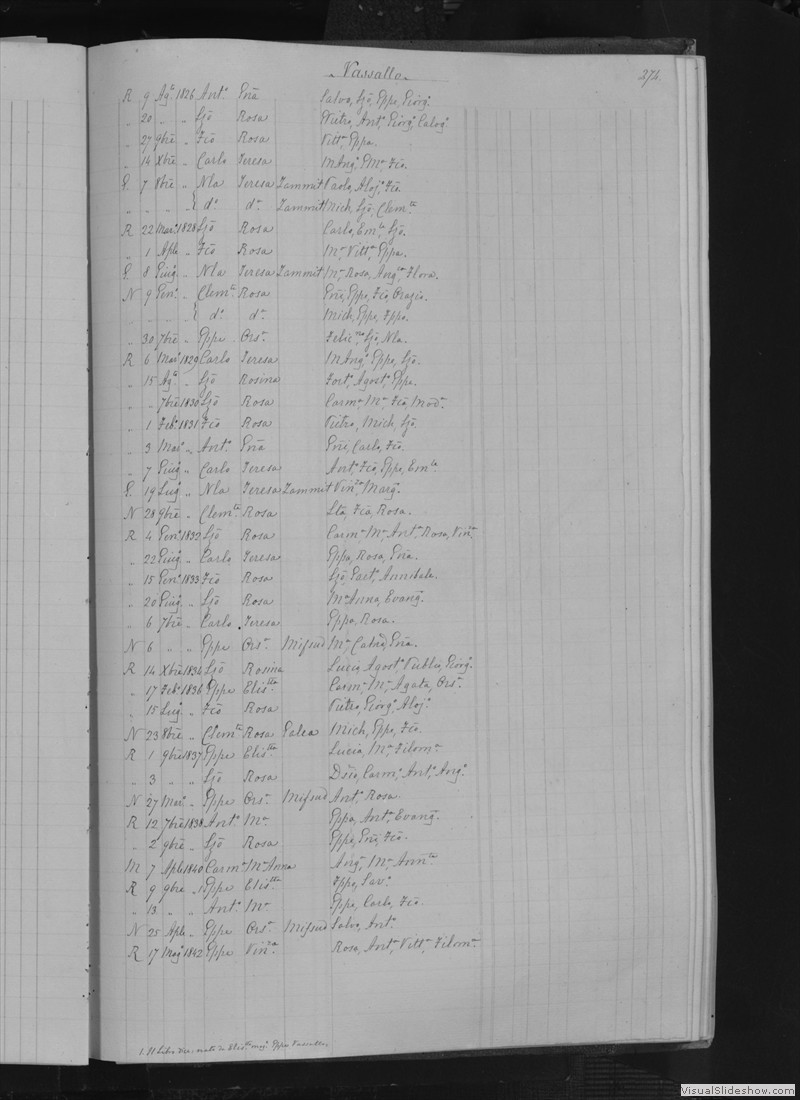 Vassallo 374.
R 9 Agto 1826 Anto Gña Salvo, Sjō, Gppe, Giorgo
" 20 " " Sjō Rosa Pietro, Anto, Giorgo, Calogo
" 27 9bre " Fcō Rosa Vitta, Gppa.
" 14 Xbre " Carlo Teresa MAnga, EMa, Fca.
G. 7 8bre " Nla Teresa Zammit Paolo, Aloja, Fco.
" " " " { do do Zammit Mich, Sjō, Clemte
R 22 Marzo 1828 Sjō Rosa Carlo, Emle, Sjō.
" 1 Aple " Fcō Rosa Ma Vitta, Gppa.
G. 8 Giug " Nla Teresa Zammit Ma, Rosa, Angca, Flora.
N 9 Geno " Clemte Rosa Gñe, Gppe, Fco, Orazio.
" " " " { do do Mich, Gppe, Fppo.
" 30 7bre " Gppe Orsa Felicna, Sjō, Nla.
R 6 Marzo 1829 Carlo Teresa MAnga, Gppe, Sjō.
" 15 Agto " Sjō Rosina Forta, Agosto, Gppa.
" " 7bre 1830 Sjō Rosa Carma, Ma, Fca, Mada.
" 1 Febo 1831 Fcō Rosa Pietro, Mich, Sjō.
" 3 Marzo " Anto Gña Gñe, Carlo, Fco.
" 7 Giug " Carlo Teresa Anta, Fca, Gppa, Emle
G. 19 Lug " Nla Teresa Zammit Vinca, Marga.
N 28 9bre " Clemte Rosa Lta, Fca, Rosa.
R 4 Geno 1832 Sjō Rosa Carma, Ma, Anta, Rosa, Vinca.
" 22 Giug " Carlo Teresa Gppa, Rosa, Gña.
" 15 Geno 1833 Fcō Rosa Sjō, Gaeto, Annibale.
" 20 Giug " Sjō Rosa Ma Anna, Evang.
" 6 7bre " Carlo Teresa Gppa, Rosa.
N 6 " " Gppe Orsa Mifsud Ma, Catna, Gña.
R 14 Xbre 1834 Sjō Rosina Lucio, Agosto, Publio, Giorgo.
" 17 Febo 1836 Gppe Elistta Carma, Ma, Agata, Orsa.
" 15 Lug " Fcō Rosa Pietro, Giorgo, Alojo
N 23 8bre " Clemte Rosa Galea Mich, Gppe, Fco
R 1 9bre 1837 Gppe Elistta Lucia, Ma, Filoma
" 3 " " Sjō Rosa Dsco, Carmo, Anto, Ango.
N 27 Marzo " Gppe Orsa Mifsud Anta, Rosa.
R 12 7bre 1838 Anto Ma Gppa, Anta, Evang.
" 2 9bre " Sjō Rosa Gppe, Gñe, Fco.
M 7 Aple 1840 Carmo Ma Anna Anga, Ma, Annta
R 9 9bre " Gppe Elistta Fppo, Savo
" 13 " " Anto Ma Gppe, Carlo, Fco
N 25 Aple " Gppe Orsa Mifsud Salvo, Anto
R 17 Mago 1842 Gppe Vinza Rosa, Anta, Vitta, Filoma
VisualSlideshow.com